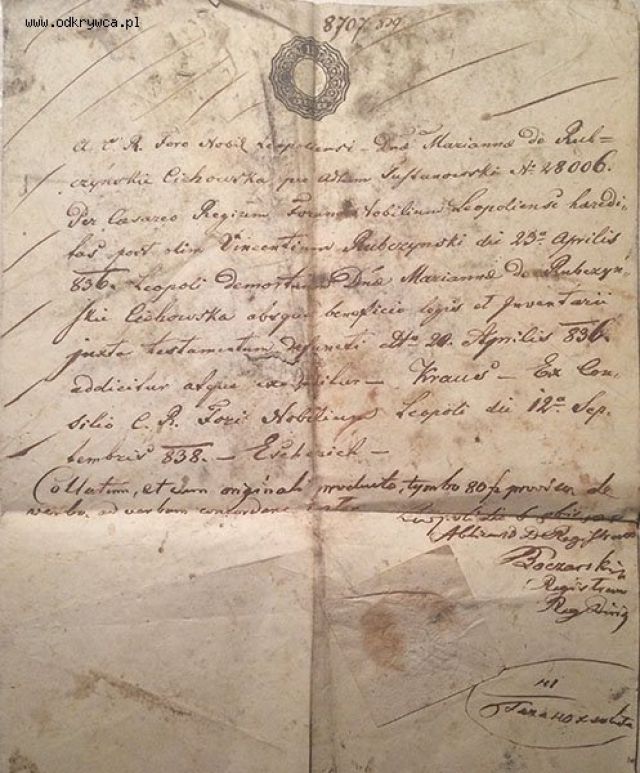 www.odkrywca.pl
8707. 329
A. C. R. Foro Nobil Leopoliensi – Dnã Marianna de Rub-
czyńskie Cichowska per Adam № 28006.
Per Caesareo Regium Forum Nobilium Leopoliense haeredi-
tas post olim Vincentium Rubczynski die 23a Aprilis
836. Leopoli demortuum Dnã Marianna de Rubczyn-
skie Cichowska absque beneficio legis et Inventarii
juxta testamentum defuncti Dto 20 Aprilis 836.
addicitur atque – Kraus – Ex Con-
silio C. R. Fori Nobilium Leopoli die 12a Sep-
tembris 838. – Escherich –
Collatum, et cum originali producto, tymbo 80
verbo ad verbum concordare
Leopoli die
Boczarski
Registrans